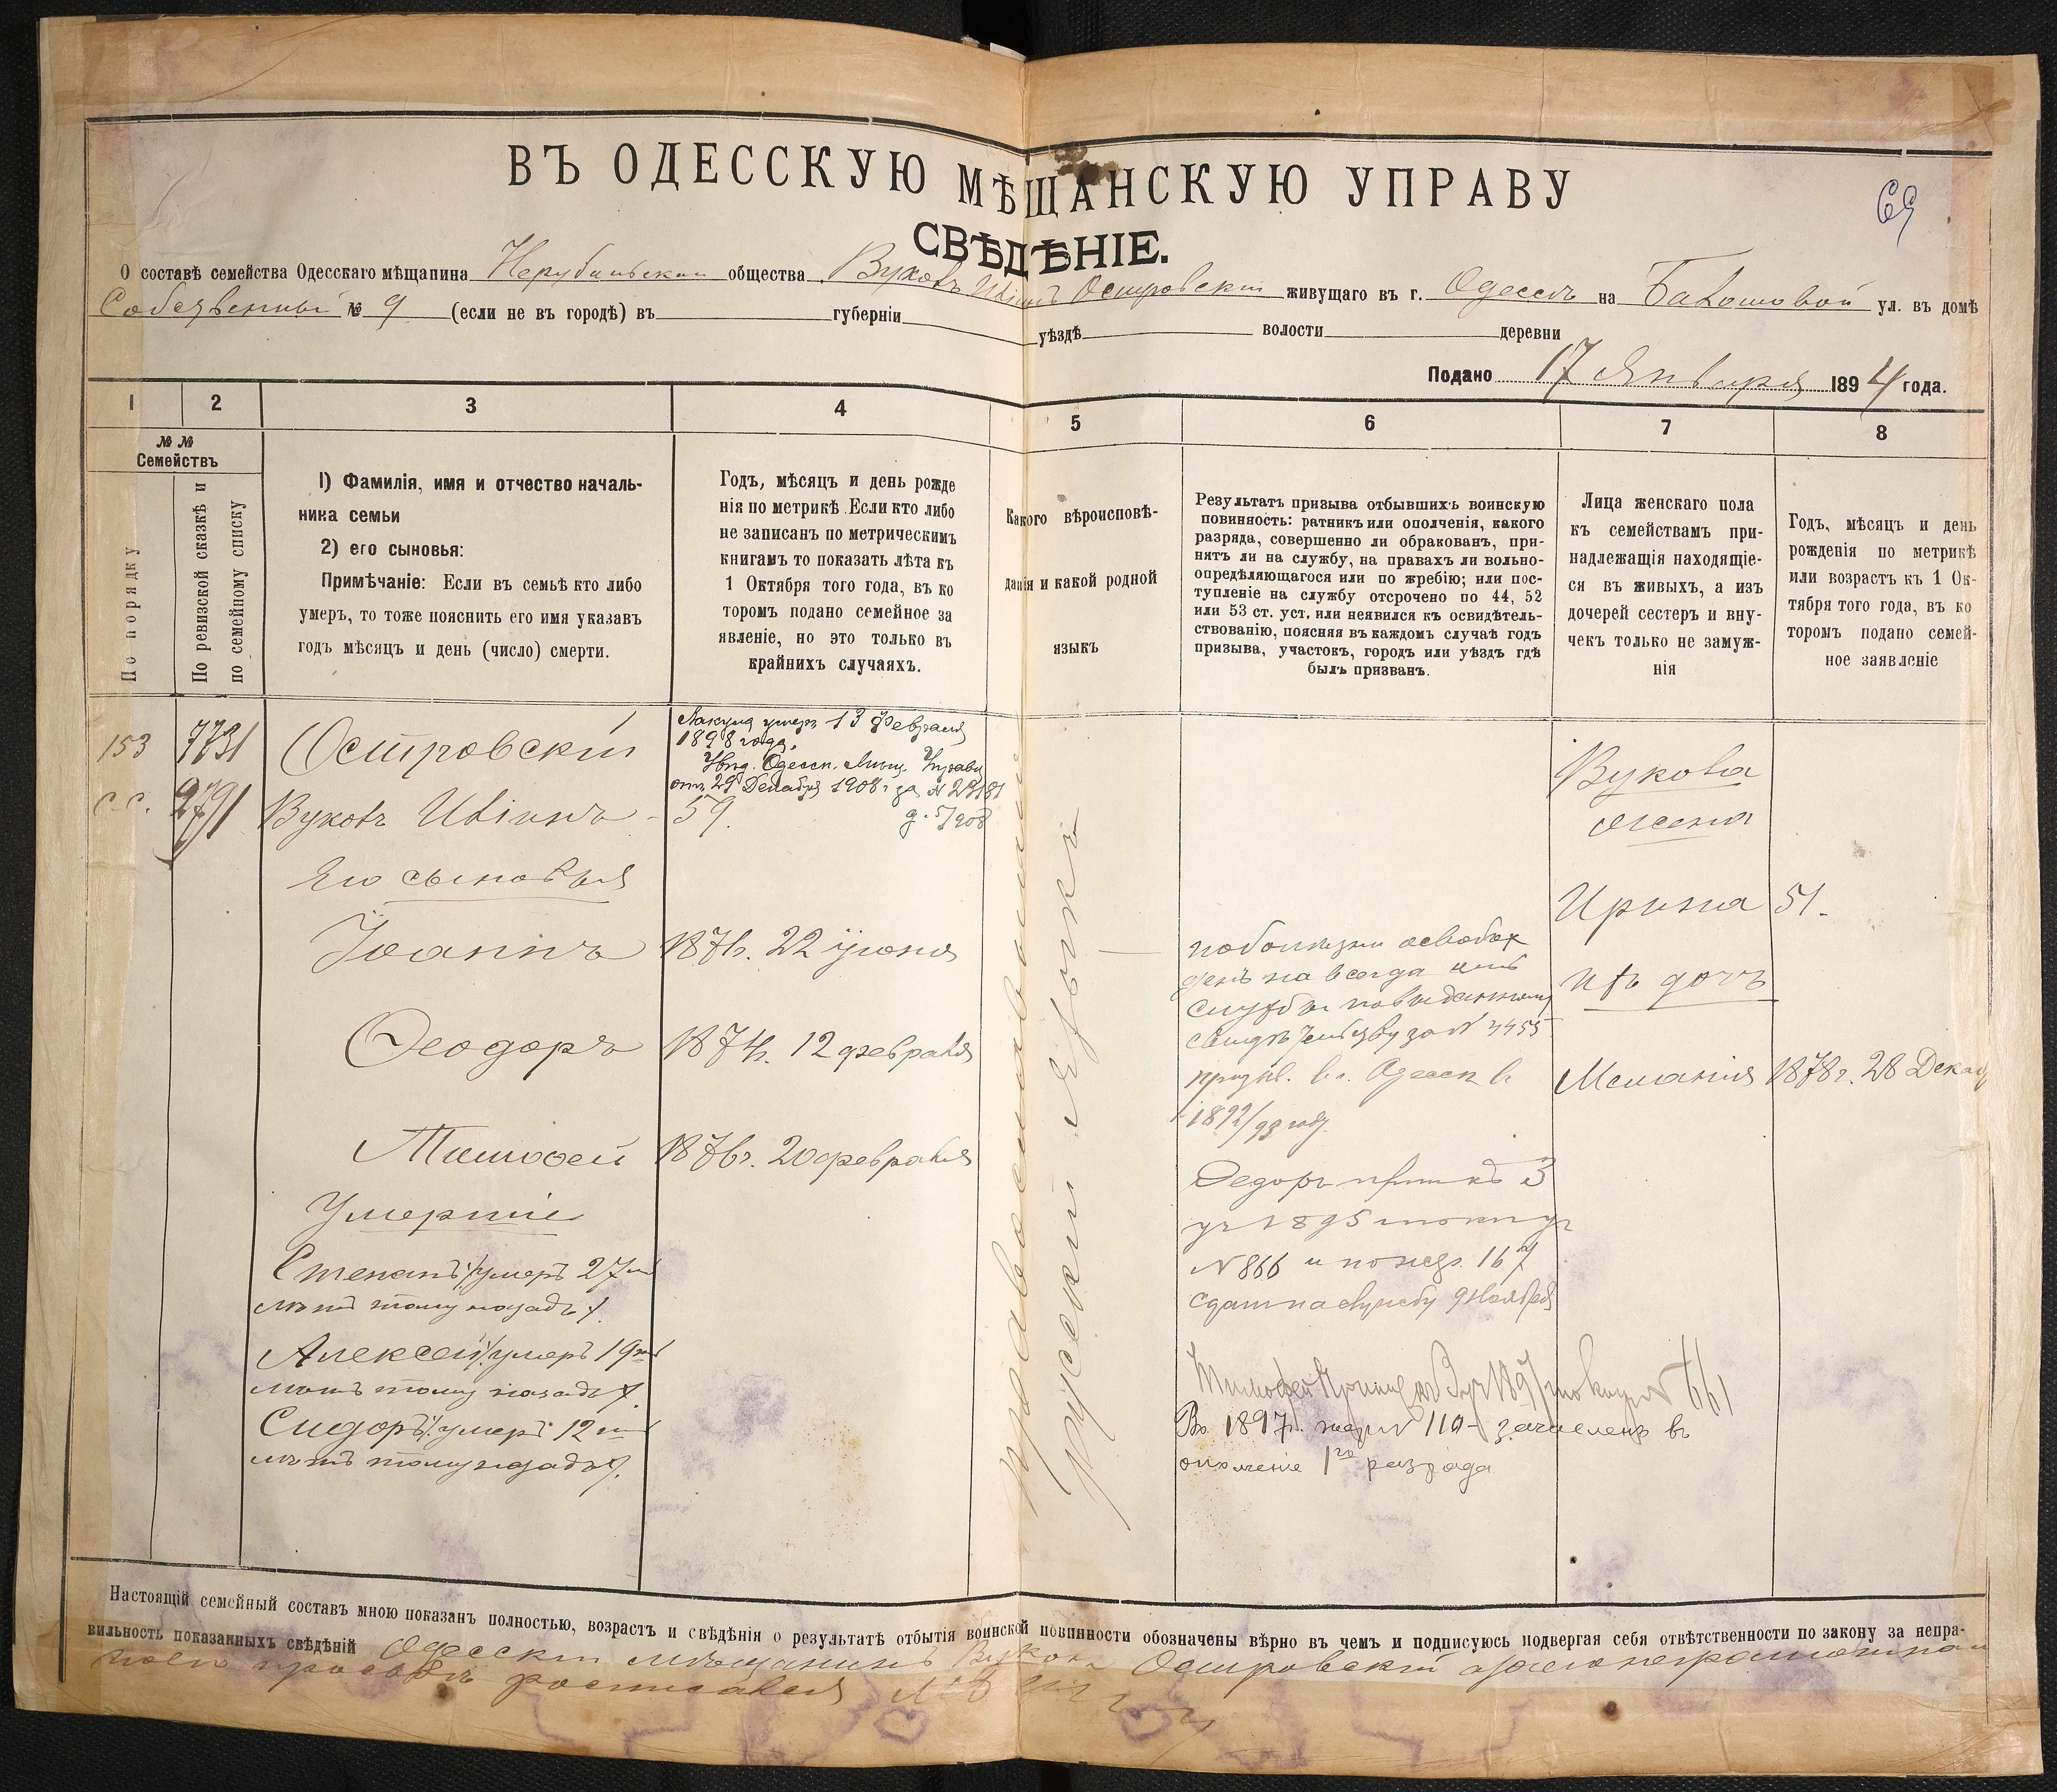 69
ВЪ ОДЕССКУЮ МѢЩАНСКУЮ УПРАВУ
СВѢДѢНІЕ.
О составѣ семейства Одесскаго мѣщанина общества Вуковъ Островскій живущаго въ г. Одессѣ на ул. въ домѣ
№ 9 (если не въ городѣ) въ губерніи уѣздѣ волости деревни
Подано 17 Января 1894 года.
1 2 3 4 5 6 7 8
№№
Семействъ
По порядку
По ревизской сказкѣ и
по семейному списку
1) Фамилія, имя и отчество началь-
ника семьи
2) его сыновья:
Примѣчаніе: Если въ семьѣ кто либо
умеръ, то тоже пояснить его имя указавъ
годъ мѣсяцъ и день (число) смерти.
Годъ, мѣсяцъ и день рожде
нія по метрикѣ Если кто либо
не записанъ по метрическимъ
книгамъ то показать лѣта къ
1 Октября того года, въ ко
торомъ подано семейное за
явленіе, но это только въ
крайнихъ случаяхъ.
Какого вѣроисповѣ-
данія и какой родной
языкъ
Результатъ призыва отбывшихъ воинскую
повинность: ратникъ или ополченія, какого
разряда, совершенно ли обракованъ, при-
нятъ ли на службу, на правахъ ли вольно-
опредѣляющагося или по жребію; или пос-
тупленіе на службу отсрочено по 44, 52
или 53 ст. уст. или неявился къ освидѣтель-
ствованію, поясняя въ каждомъ случаѣ годъ
призыва, участокъ, городъ или уѣздъ гдѣ
былъ призванъ.
Лица женскаго пола
къ семействамъ при-
надлежащія находящіе-
ся въ живыхъ, а изъ
дочерей сестеръ и вну-
чекъ только не замуж-
нія
Годъ, мѣсяцъ и день
рожденія по метрикѣ
или возрастъ къ 1 Ок-
тября того года, въ ко
торомъ подано семей-
ное заявленіе
153 7731
с.с. 2791
Островскій
Вуковъ 59.
умеръ 13 Февраля
1898 года.
Одесск. Мѣщ. Управы
отъ 29 Декабря 1908 г за №
Его сыновья
Іоаннъ 1871г. 22 іюня
Ѳеодоръ 1874г. 12 февраля
Тимоѳей 1876г. 20 февраля
Умершіе
Степанъ /умеръ 27
лѣтъ тому назадъ/.
Алексей /умеръ 19
лѣтъ тому назадъ/.
Сидоръ /умеръ 12
лѣтъ тому назадъ/.
православнаго
русскій языкъ
по болѣзни освобож
денъ на всегда отъ
службы по выданному
свидѣтельству за № 4455
призыв. в г. Одессѣ въ
1892/93 году.
Федоръ 3
1895
№ 866 и по жер. 167
сдатъ на службу 9 Ноября
Тимофей 661
Въ 1897г. жер № 110 - зачисленъ въ
ополченіе 1го разряда
Вукова
жена
Ирина 51.
ихъ дочь
Меланія 1878г. 28 Декаб
Настоящій семейный составъ мною показанъ полностью, возрастъ и свѣдѣнія о результатѣ отбытія воинской повинности обозначены вѣрно въ чемъ и подписуюсь подвергая себя отвѣтственности по закону за непра-
вильность показанныхъ свѣдѣній Одесскій мѣщанинъ Вуковъ Островскій